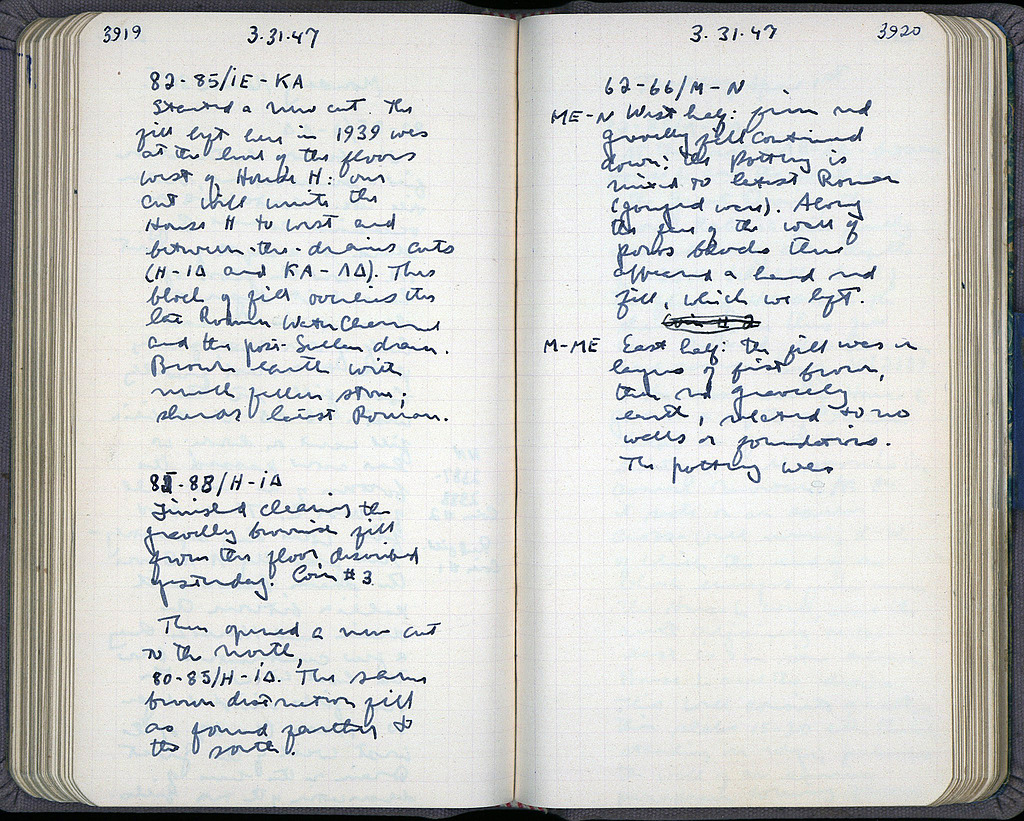 3919
3.31.47
82-85/ΙΕ-ΚΑ
Started a new cut. The
fill left here in 1939 was
at the level of the floors
west of House H: our
cut will unite the
House H to west and
between-the-drains cuts
(H-ΙΔ and ΚΑ-ΛΔ). This
block of fill overlies the
late Roman Water Channel
and the post-Sullan drain.
Brown earth with
much fallen stone;
sherds latest Roman.
88/H-ΙΔ
Finished clearing the
gravelly brownish fill
from the floor described
yesterday. Coin #3
Then opened a new cut
to the north,
80-85/H-ΙΔ. The same
brown destruction fill
as found farther to
the south.
3.31.47
3920
62-66/Μ-Ν
ΜΕ-Ν West half: firm red
gravelly fill continued
down: the pottery is
mixed to latest Roman
(gouged ware). Along
the line of the wall of
poros blocks there
appeared a hard red
fill, which we left.
Μ-ΜΕ East half: the fill was in
layers of first brown,
then red gravelly
earth, related to no
walls or foundations.
The pottery was